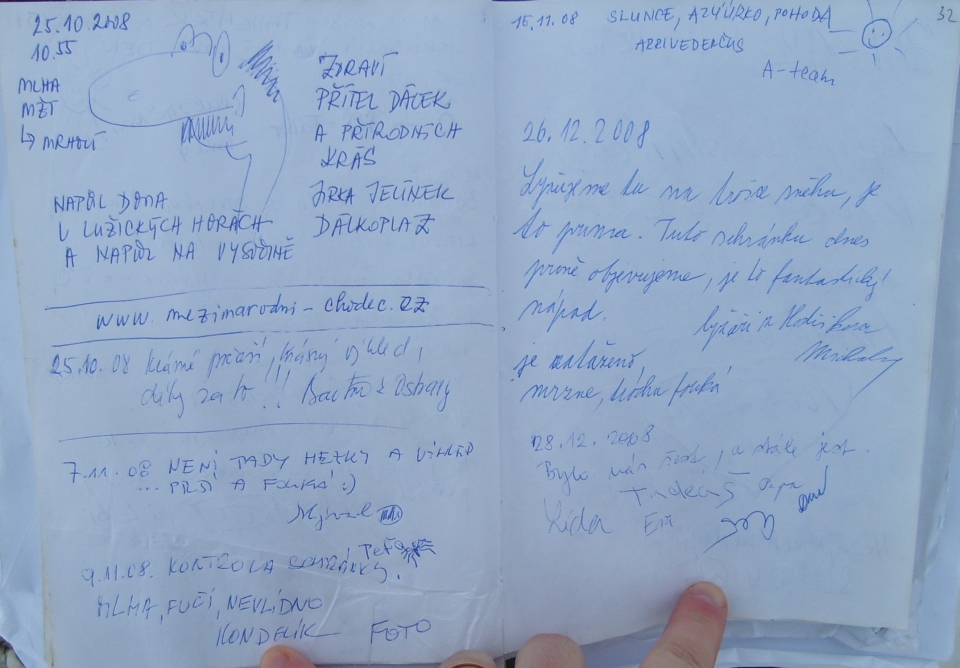 25.10.2008
10.55
MLHA
MŽÍ
↳ MRHOLÍ
ZDRAVÍ
PŘÍTEL DÁLEK
A PŘÍRODNÍCH
KRÁS
JIRKA JELÍNEK
DÁLKOPLAZ
NAPŮL DOMA
V LUŽICKÝCH HORÁCH
A NAPŮL NA VYSOČINĚ
www.mezinarodni-chodec.cz
25.10.08 Krásné počasí, krásný výhled,
díky za to!!!
7.11.08 NENÍ TADY HEZKY A VÍHLED
... PRŠÍ A FOUKÁ :)
9.11.08. KONTROLA SCHRÁNKY.
MLHA, FUČÍ, NEVLÍDNO
KONDELÍK FOTO
15.11.08 SLUNCE, AZÝÚRKO, POHODA
ARRIVEDERČUS
A-team
32
26.12.2008
Lyžujeme tu na trošce sněhu, je
to prima. Tuto schránku dnes
prvně objevujeme, je to fantastický
nápad.
lyžaři z
je zataženo,
mrzne, trochu fouká
28.12.2008
Bylo nás šest, a stále jest.
Tadeáš